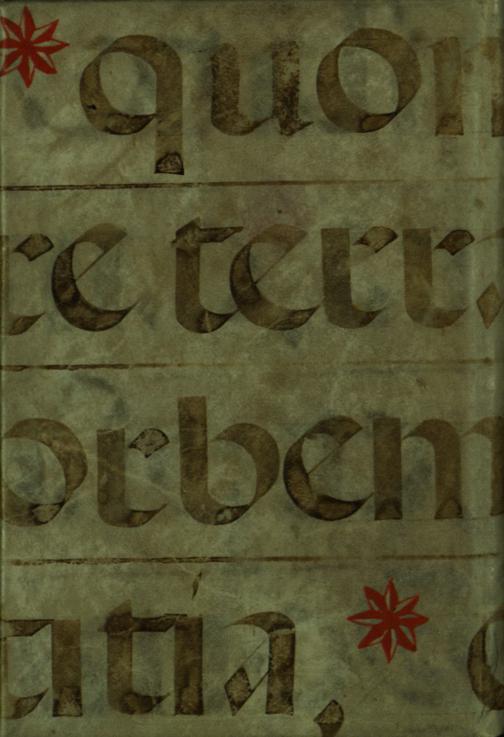 * quon
re terr
orbem
atia, *